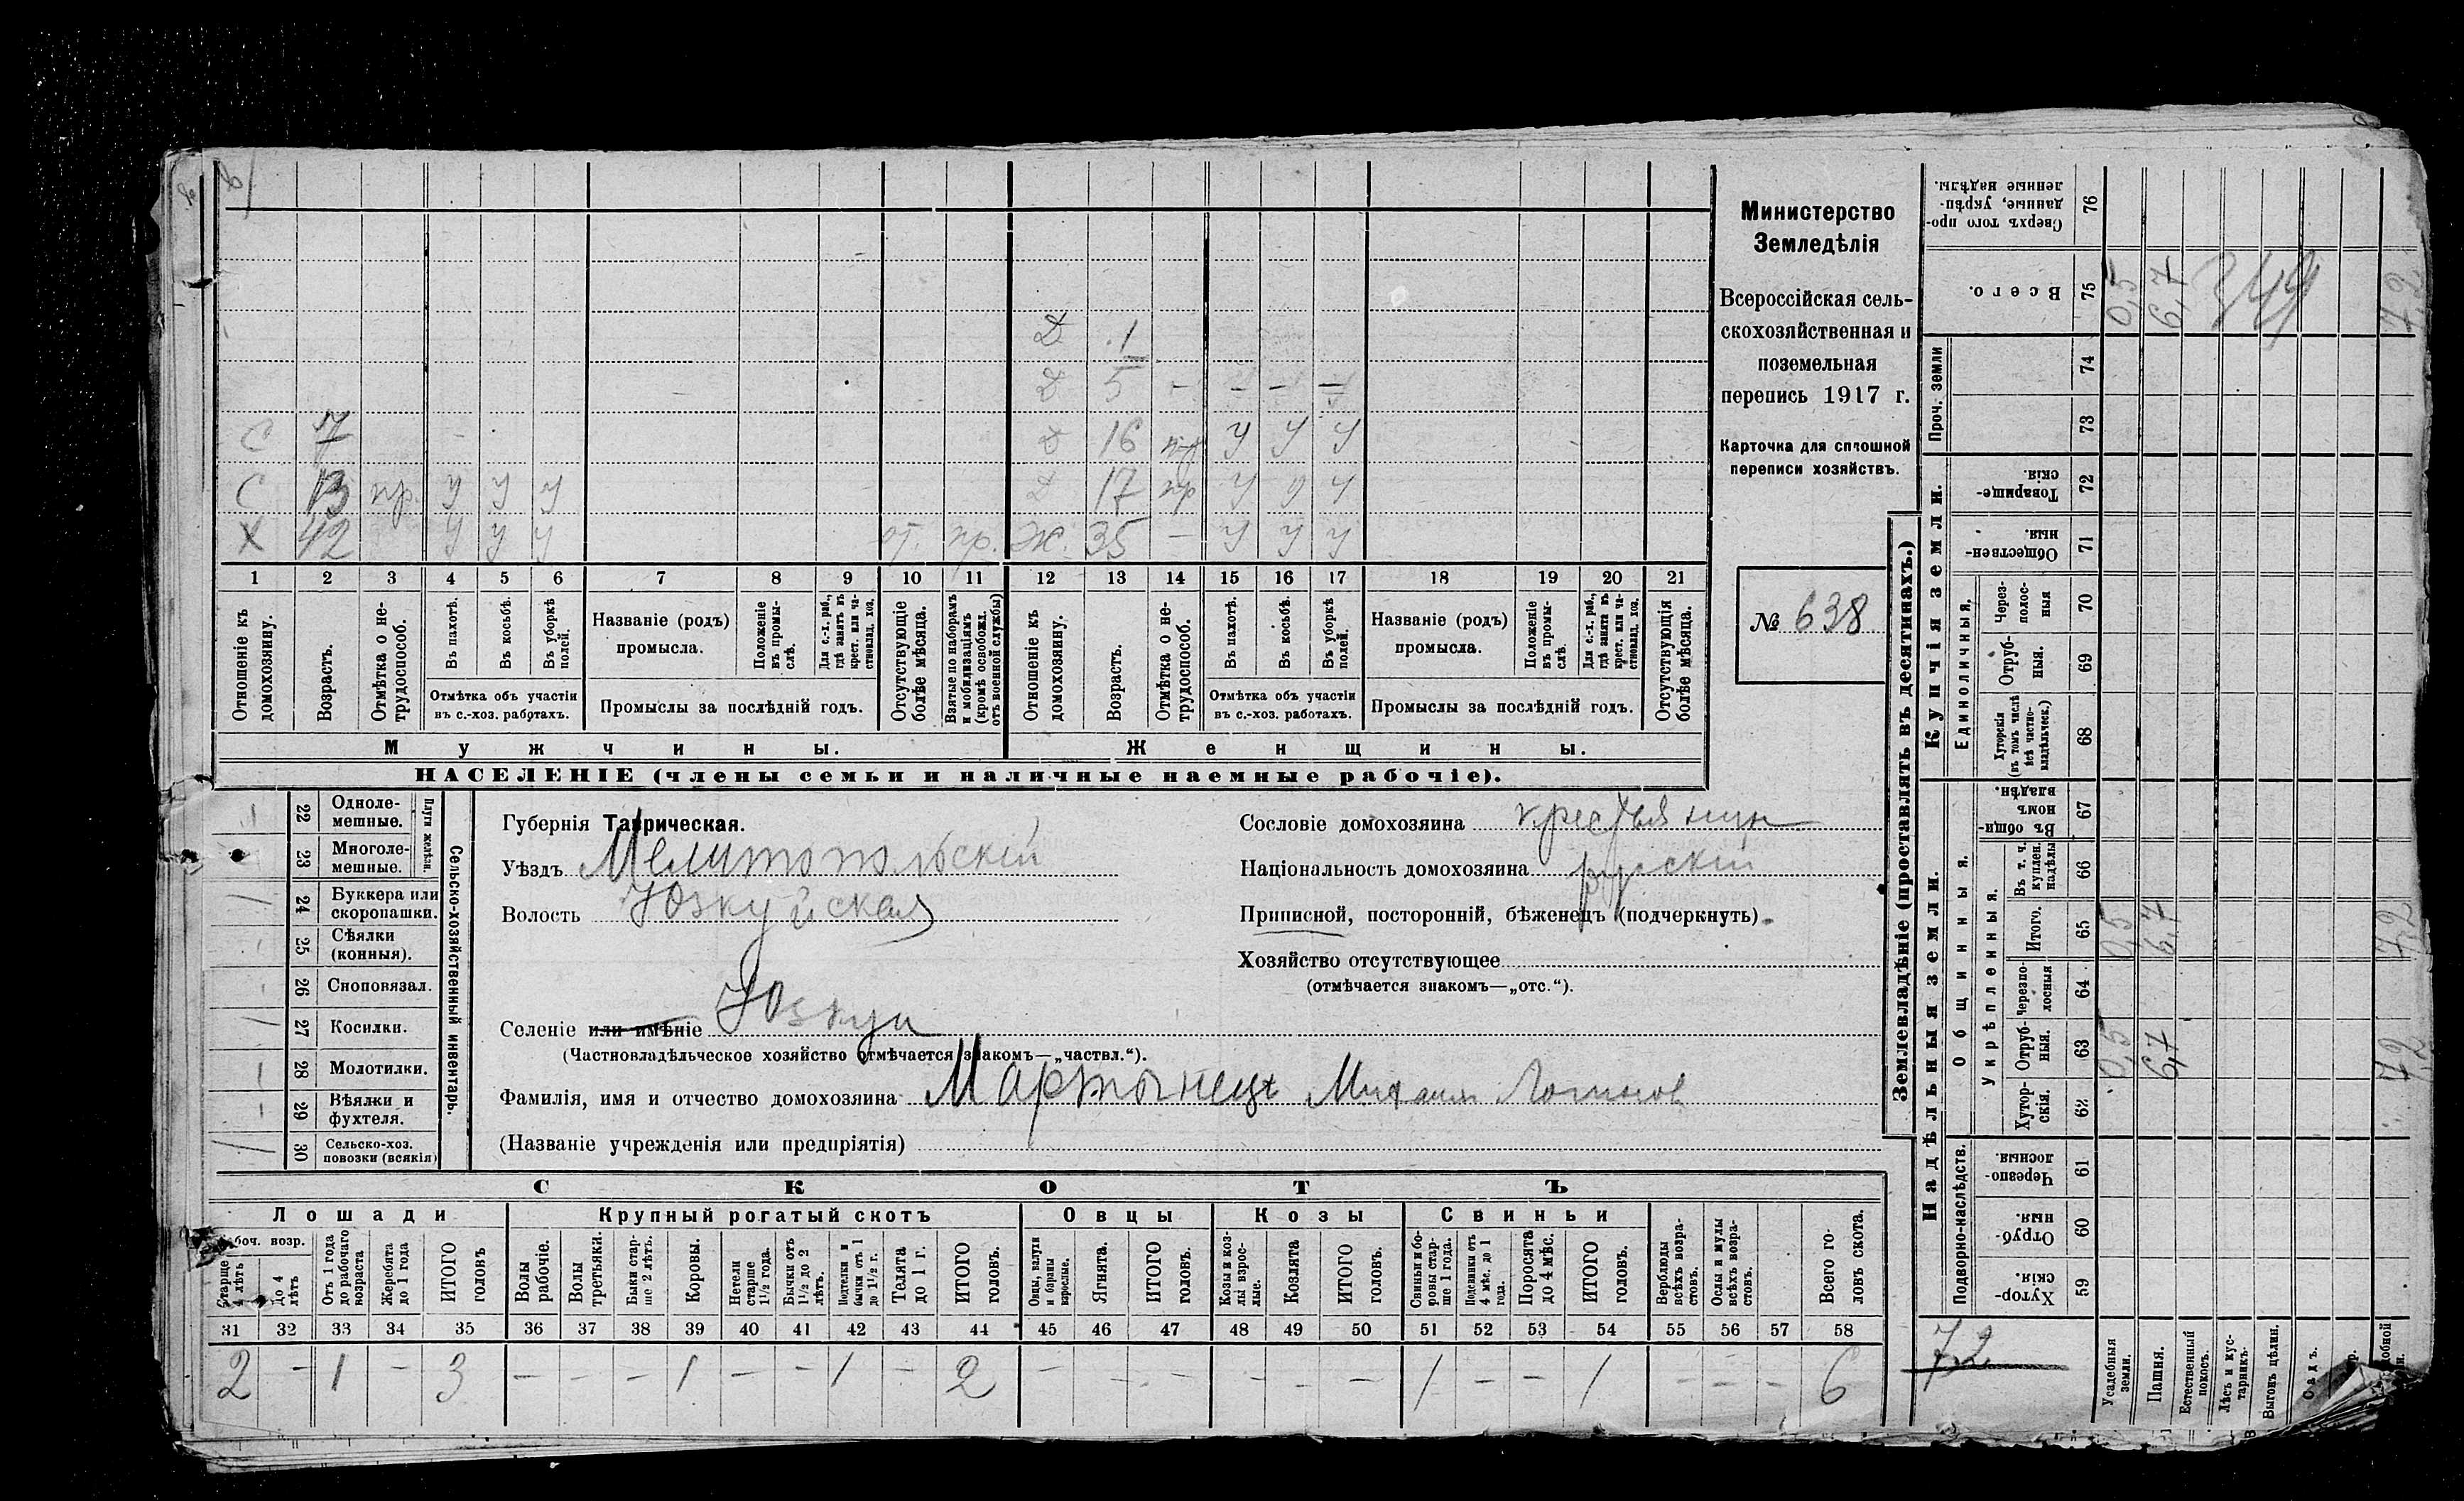 Министерство
Земледѣлія
Всероссійская сель-
скохозяйственная и
поземельная
перепись 1917 г.
Карточка для сплошной
переписи хозяйствъ.
№ 638
Д 1
Д 5 — — — —
С 7 Д 16 У У У
С 13 пр. У У У Д 17 пр У У У
Х 42 У У У от. пр. Ж. 35 — У У У
1 2 3 4 5 6 7 8 9 10 11 12 13 14 15 16 17 18 19 20 21
Отношеніе къ домохозяину.
Возрастъ.
Отмѣтка о не-трудоспособ.
Въ пахотѣ.
Въ косьбѣ.
Въ уборкѣ полей.
Отмѣтка объ участіи
въ с.-хоз. работахъ.
Названіе (родъ)
промысла.
Положеніе въ промы-слѣ.
Для с.-х. раб., гдѣ занятъ въ крест. или ча-стновлад. хоз.
Промыслы за послѣдній годъ.
Отсутствующіе болѣе мѣсяца.
Взятые по наборамъ и мобилизаціямъ (кромѣ освобожд. отъ военной службы)
Отношеніе къ домохозяину.
Возрастъ.
Отмѣтка о не-трудоспособ.
Въ пахотѣ.
Въ косьбѣ.
Въ уборкѣ полей.
Отмѣтка объ участіи
въ с.-хоз. работахъ.
Названіе (родъ)
промысла.
Положеніе въ промы-слѣ.
Для с.-х. раб., гдѣ занята въ крест. или ча-стновлад. хоз.
Промыслы за послѣдній годъ.
Отсутствующія болѣе мѣсяца.
Мужчины. Женщины.
НАСЕЛЕНІЕ (члены семьи и наличные наемные рабочіе).
22 Одноле-мешные.
23 Многоле-мешные.
Плуги желѣзн.
24 Буккера или скоропашки.
25 Сѣялки (конныя).
26 Сноповязал.
27 Косилки.
28 Молотилки.
29 Вѣялки и фухтеля.
30 Сельско-хоз. повозки (всякія)
Сельско-хозяйственный инвентарь.
Губернія Таврическая.
Уѣздъ Мелитопольскій
Волость Юзкуйская
Селеніе или имѣніе Юзкуи
(Частновладѣльческое хозяйство отмѣчается знакомъ—„частвл.“).
Фамилія, имя и отчество домохозяина Мартынецъ Михаилъ Логинов
(Названіе учрежденія или предпріятія)
Сословіе домохозяина крестьянин
Національность домохозяина русскій
Приписной, посторонній, бѣженецъ (подчеркнуть)
Хозяйство отсутствующее
(отмѣчается знакомъ—„отс.“).
СКОТЪ
Лошади Крупный рогатый скотъ Овцы Козы Свиньи
боч. возр.
Старше 4 лѣтъ
До 4 лѣтъ
Отъ 1 года до рабочаго возраста
Жеребята до 1 года
ИТОГО головъ
Волы рабочіе.
Волы третьяки.
Быки стар-ше 2 лѣтъ.
Коровы.
Нетели старше 1½ года.
Бычки отъ 1½ до 2 лѣтъ.
Подтелки и бычки отъ 1 до 1½ г.
Телята до 1 г.
ИТОГО головъ.
Овцы, валухи и бараны взрослые.
Ягнята.
ИТОГО головъ.
Козы и коз-лы взрос-лые.
Козлята
ИТОГО головъ.
Свиньи и бо-ровы стар-ше 1 года.
Подсвинки отъ 4 мѣс. до 1 года.
Поросята до 4 мѣс.
ИТОГО головъ.
Верблюды всѣхъ возра-стовъ.
Ослы и мулы всѣхъ возра-стовъ.
Всего го-ловъ скота.
31 32 33 34 35 36 37 38 39 40 41 42 43 44 45 46 47 48 49 50 51 52 53 54 55 56 57 58
2 — 1 — 3 — — — 1 — — 1 — 2 — — — — — — 1 — — 1 — — — 6
Землевладѣніе (проставлять въ десятинахъ.)
Надѣльныя земли. Купчія земли. Проч. земли
Подворно-наслѣдств.
Общинныя.
Укрѣпленныя.
Единоличныя.
Хутор-скія. 59
Отруб-ныя. 60
Черезпо-лосныя. 61
Хутор-скія. 62
Отруб-ныя. 63 0,5 6,7 7,2
Черезпо-лосныя 64
Итого. 65 0,5 6,7 7,2
Въ т. ч. куплен. надѣлы 66
Въ общи-номъ владѣн. 67
Хуторскія (въ томъ числѣ всѣ частно-владѣльческ.) 68
Отруб-ныя. 69
Через-полос-ныя 70
Обществен-ныя. 71
Товарище-скія. 72
73
74
Всего. 75 0,5 6,7 349 7,2
Сверхъ того про-данные, укрѣп-ленные надѣлы. 76
72
Усадебныя земли.
Пашня.
Естественный покосъ.
Лѣсъ и кус-тарникъ.
Выгонъ цѣлин.
Садъ.